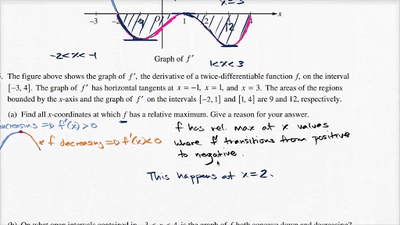 x=3
-3 -2 1 2 3 4 x
9 12
-2<x<-1
Graph of f′
1<x<3
The figure above shows the graph of f′, the derivative of a twice-differentiable function f, on the interval
[−3, 4]. The graph of f′ has horizontal tangents at x = −1, x = 1, and x = 3. The areas of the regions
bounded by the x-axis and the graph of f′ on the intervals [−2, 1] and [1, 4] are 9 and 12, respectively.
(a) Find all x-coordinates at which f has a relative maximum. Give a reason for your answer.
f′(x)>0
f decreasing ⇒ f′(x)<0
f has rel. max at x values
where f′ transitions from positive
to negative.
This happens at x=2.
(b) On what open intervals contained in −3 < x < 4 is the graph of f both concave down and decreasing?